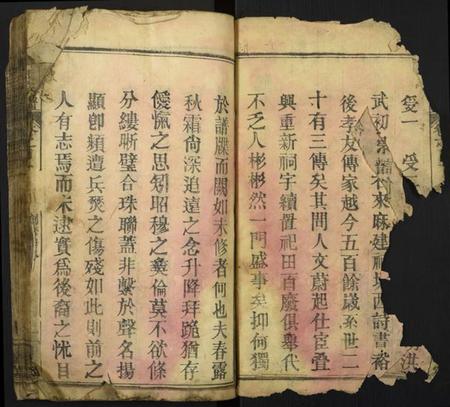 爰一 受
洪
武初
來麻建祠
西詩書裕
後孝友傳家越今五百餘歲系世二
十有三傳矣其間人文蔚起仕宦叠
興重新祠宇續置祀田百廢俱舉代
不乏人彬彬然一門盛事矣抑何獨
於譜牒而闕如未修者何也夫春露
秋霜尚深追遠之念升降拜跪猶存
優愾之思别昭穆之彝倫莫不欲條
分縷晰璧合珠聯蓋非繫於聲名揚
顯卽頻遭兵燹之傷殘如此則前之
人有志焉而未逮實爲後裔之怵目